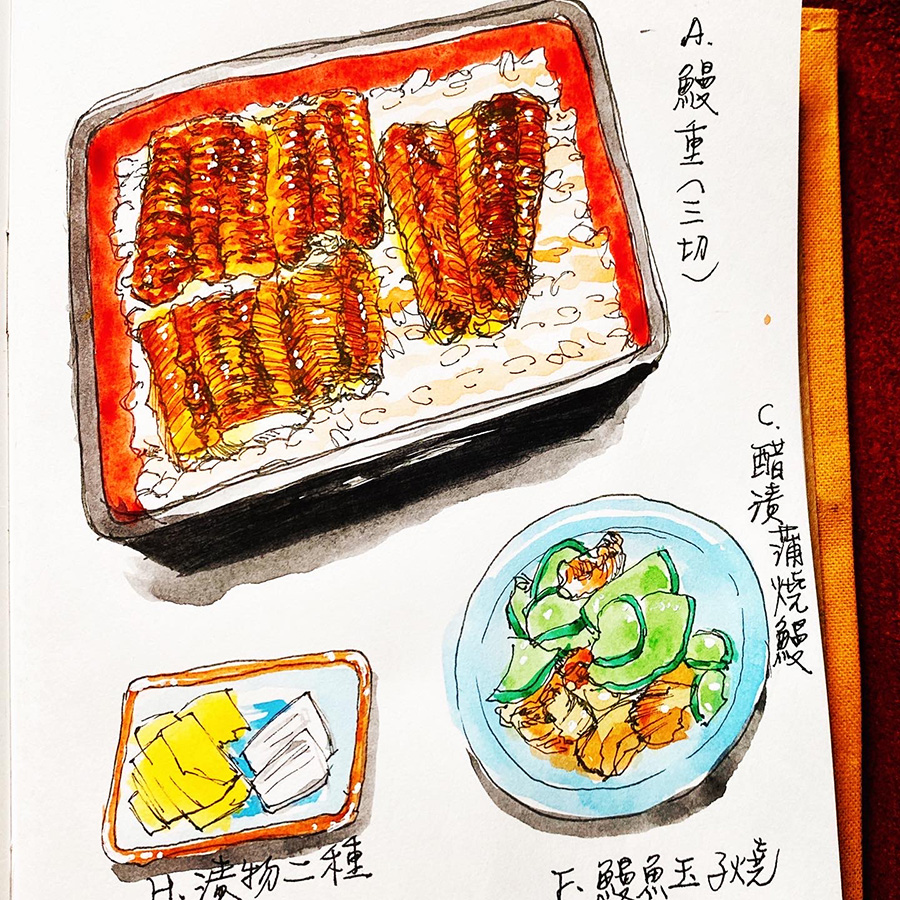 A. 鰻重(三切)
C. 醋漬蒲燒鰻
H. 漬物二種
F. 鰻魚玉子燒